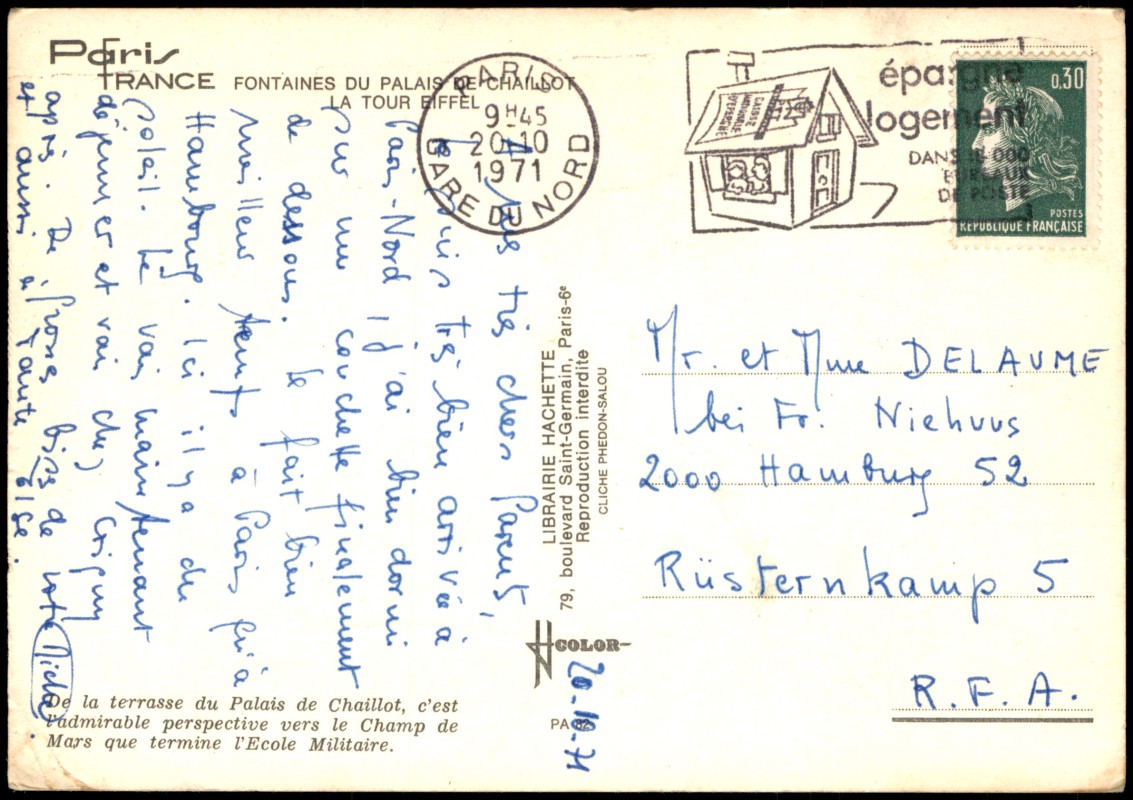 Paris
FRANCE
FONTAINES DU PALAIS DE CHAILLOT
LA TOUR EIFFEL
PARIS
9H45
20-10
1971
GARE DU NORD
CAISSE NATIONALE D'EPARGNE
épargne
logement
DANS 18 000
BUREAUX
DE POSTE
0,30
POSTES
REPUBLIQUE FRANÇAISE
Mes très chers Parents,
Je suis très bien arrivée à
Paris-Nord, j'ai bien dormi
sur une couchette finalement
de dessous. Il fait bien
meilleur temps à Paris qu'à
Hambourg. Ici il y a du
soleil. Je vais maintenant
déjeuner et vais chez
après. De grosses bises de votre
et aussi à Tante Else.
LIBRAIRIE HACHETTE
79, boulevard Saint-Germain, Paris-6e
Reproduction interdite
CLICHE PHEDON-SALOU
COLOR
PA 82
20-10-71
Mr. et Mme DELAUME
bei Fr. Niehuus
2000 Hamburg 52
Rüsternkamp 5
R.F.A.
De la terrasse du Palais de Chaillot, c'est
l'admirable perspective vers le Champ de
Mars que termine l'Ecole Militaire.